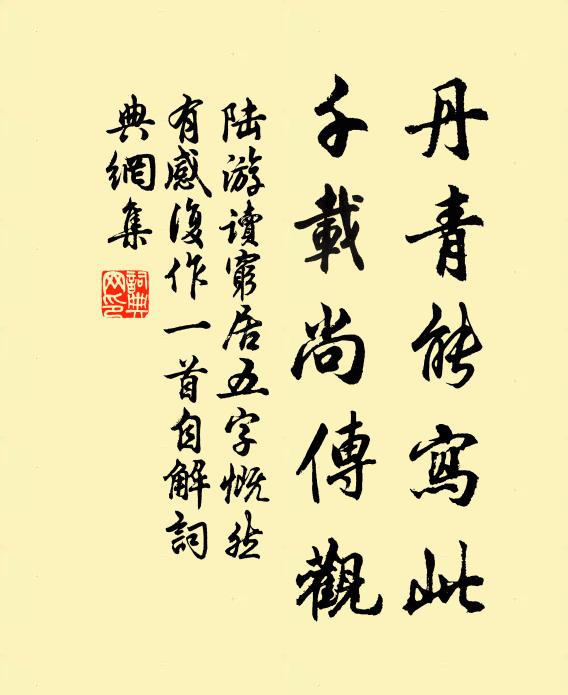 丹青能寫此
千載尚傳觀
陆游读穷居五字慨然
有感復作一首自解詞
典網集
詞典網印